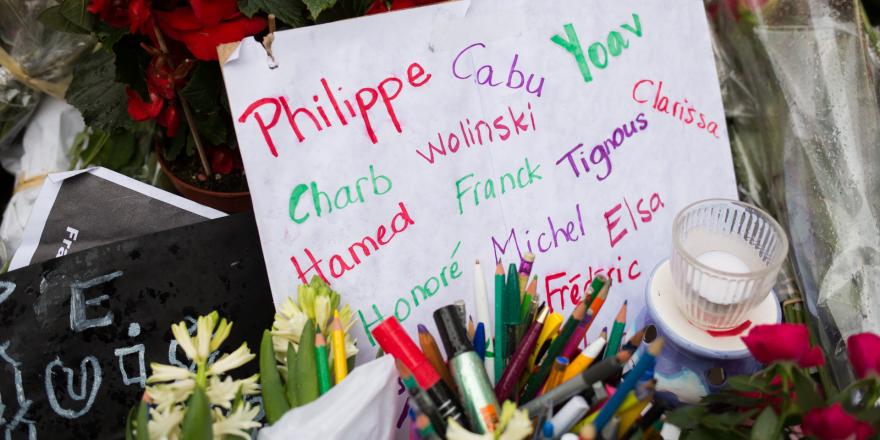 Philippe Cabu Yoav
Clarissa
Wolinski
Tignous
Charb Franck
Elsa
Hamed Michel
Honoré Frédéric
Fra
E
uis